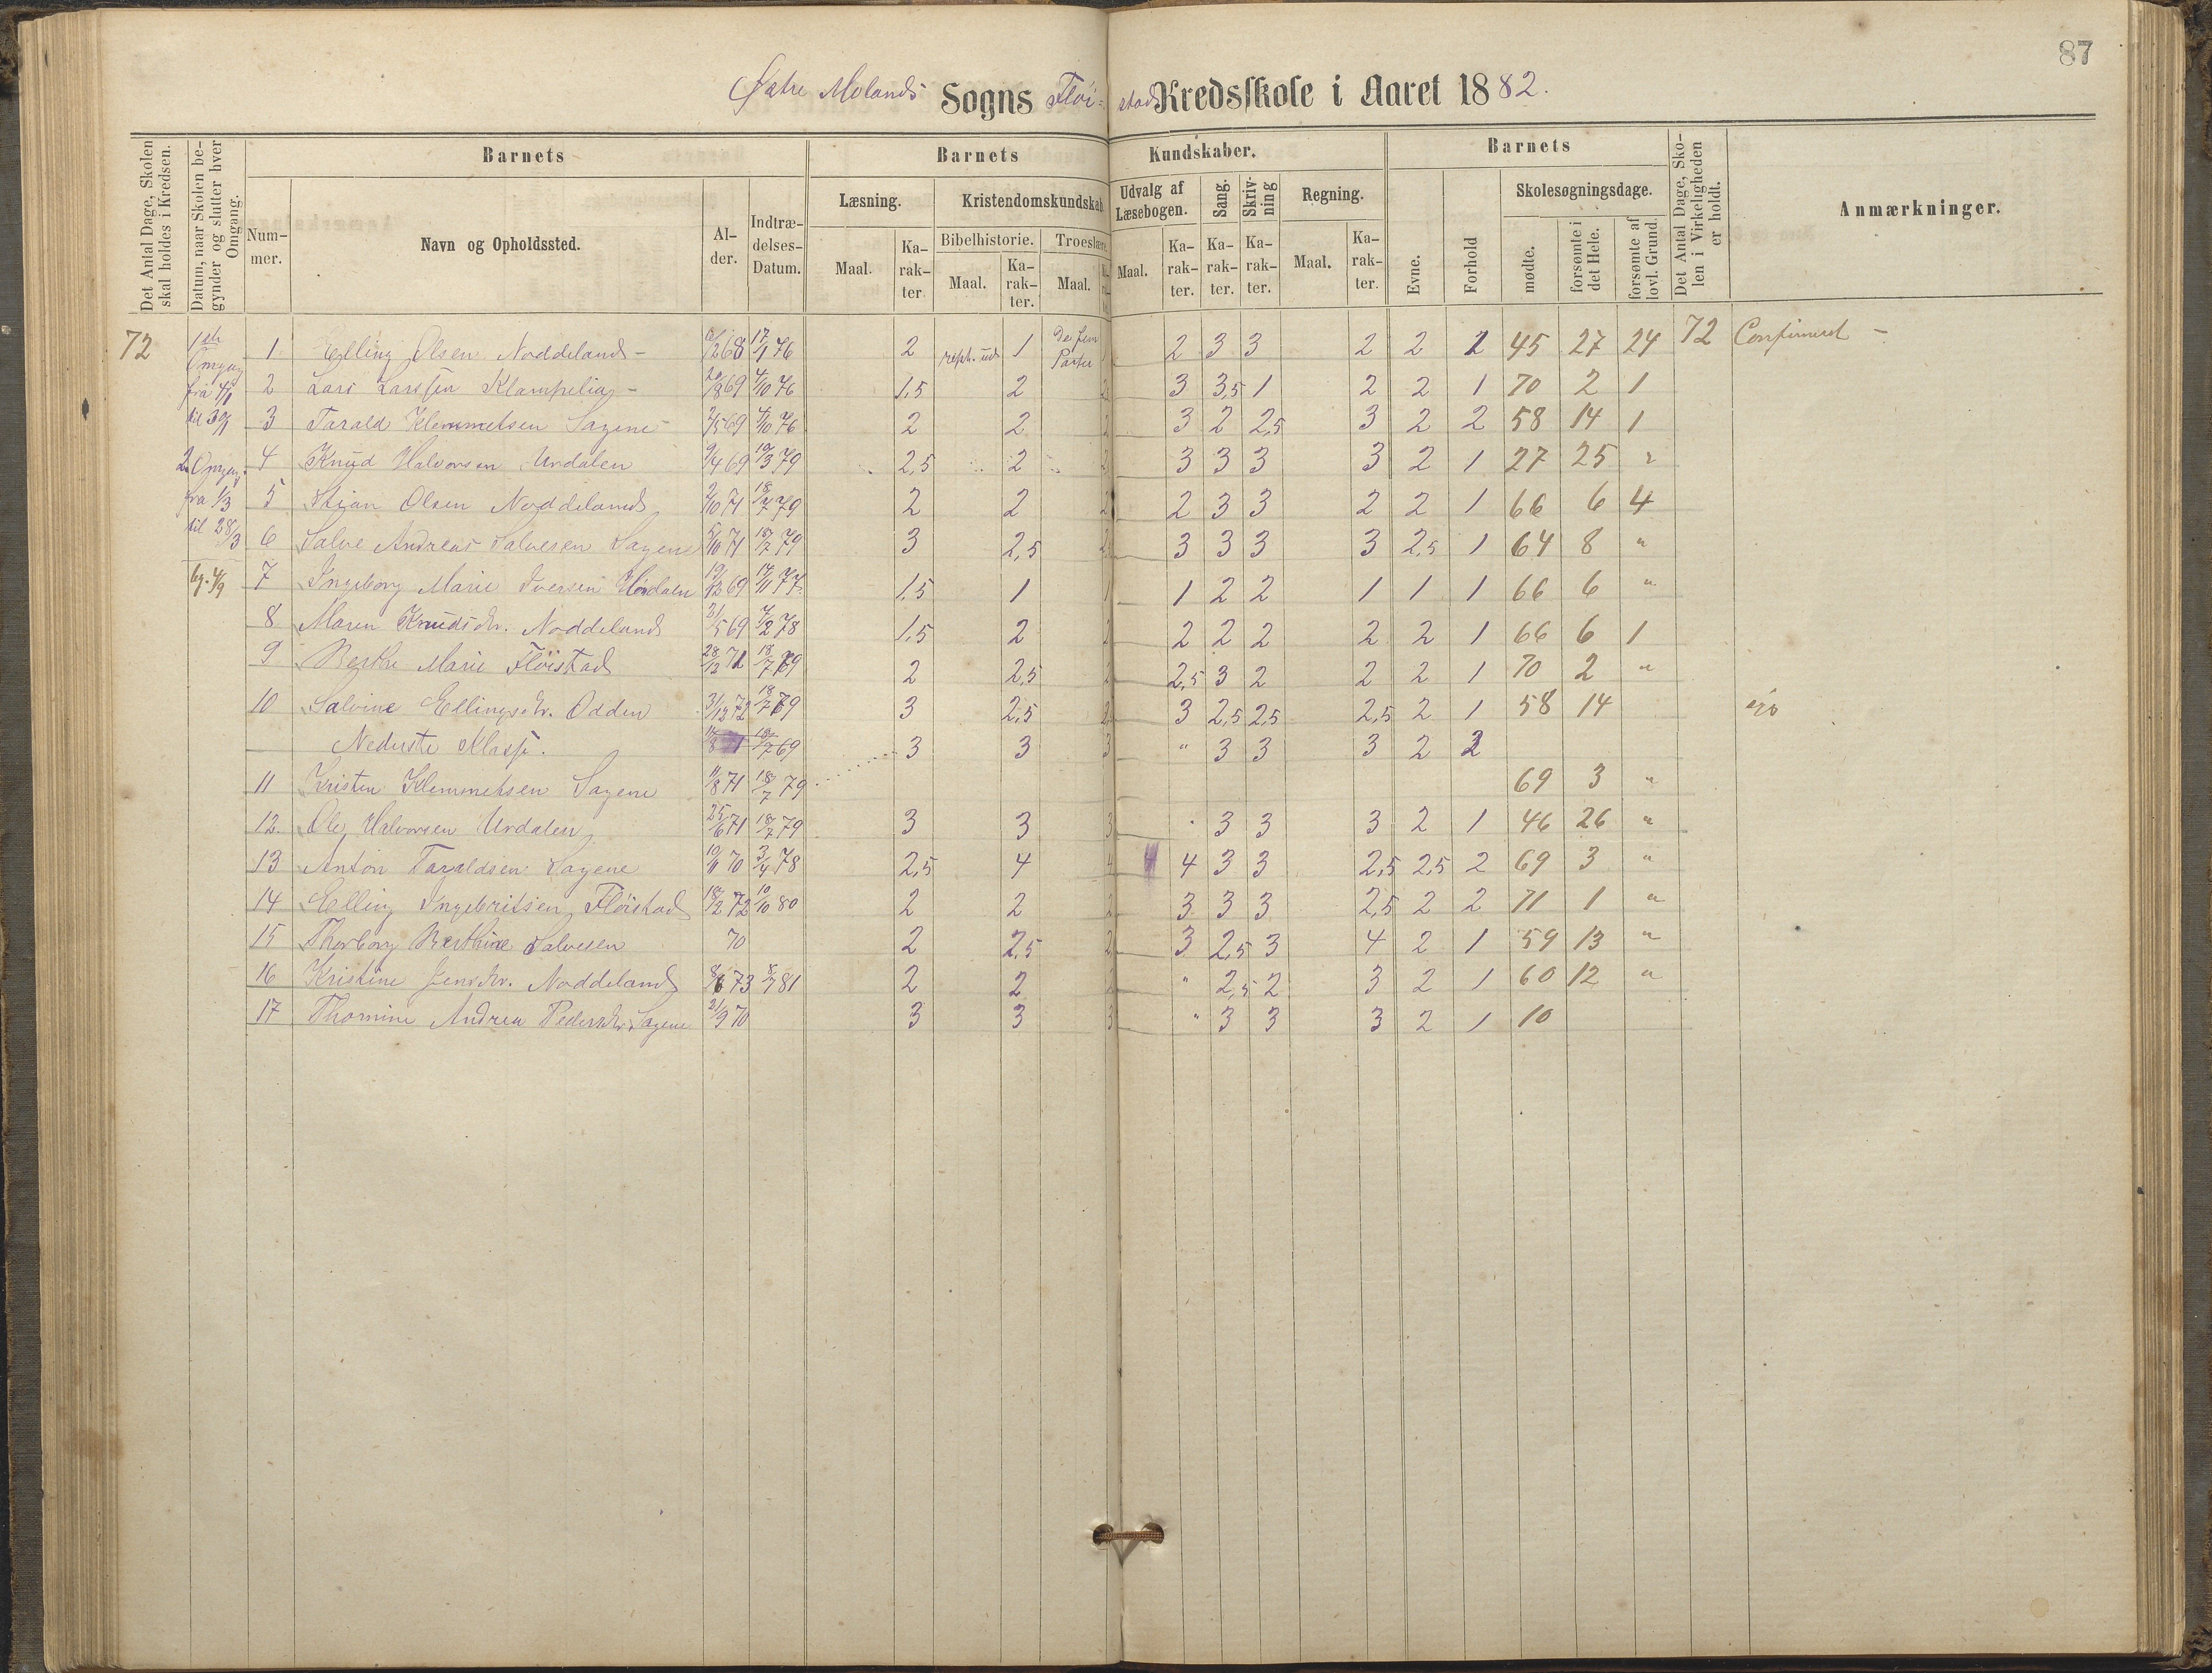 87
Østre Molands Sogns Flöi= stad Kredsskole i Aaret 1882.
Det Antal Dage, Skolen skal holdes i Kredsen.
Datum, naar Skolen begynder og slutter hver Omgang.
Barnets
Nummer.
Navn og Opholdssted.
Alder.
Indtrædelses-Datum.
Barnets Kundskaber.
Læsning.
Maal. Karakter.
Kristendomskundskab
Bibelhistorie. Troeslære.
Maal. Karakter. Maal.
Udvalg af Læsebogen.
Maal. Karakter.
Sang. Karakter.
Skrivning Karakter.
Regning.
Maal. Karakter.
Barnets
Evne. Forhold
Skolesøgningsdage.
mødte. forsømte i det Hele. forsømte af lovl. Grund.
Det Antal Dage, Skolen i Virkeligheden er holdt.
Anmærkninger.
72 1ste Omgang 1 Elling Olsen Noddeland - 68 17/1 76 2 rept. ud 1 De fem Parter 2 3 3 2 2 2 45 27 24 72 Confirmeret -
fra 4/1 2 Lars Larssen Klampelia - 20/8 69 4/10 76 1,5 2 3 3,5 1 2 2 1 70 2 1
3 Tarald Klemmetsen Sagene 2/5 69 4/10 76 2 2 2 3 2 2,5 3 2 2 58 14 1
2. Omgang 4 Knud Halvorsen Urdalen 9/4 69 19/3 79 2,5 2 2 3 3 3 3 2 1 27 25 "
fra 1/3 5 Stian Olsen Noddeland 2/10 71 18/7 79 2 2 2 2 3 3 2 2 1 66 6 4
til 28/3 6 Salve Andreas Salvesen Sagene 5/10 71 18/7 79 3 2,5 3 3 3 3 2,5 1 64 8 "
7 Ingeborg Marie Iversen 19/12 69 17/11 77 1,5 1 1 1 2 2 1 1 1 66 6 "
8 Maren Knudsdtr. Noddeland 31/5 69 7/2 78 1,5 2 2 2 2 2 2 2 1 66 6 1
9 Berthe Marie Flöistad 28/12 71 18/7 79 2 2,5 2 2,5 3 2 2 2 1 70 2 "
10 Salvine Ellingsdtr. Odden 3/12 72 18/7 79 3 2,5 3 2,5 2,5 2,5 2 1 58 14
Nederste Klasse. 18/7 69 3 3 3 " 3 3 3 2 2
11 Kristen Klemmetsen Sagene 11/8 71 18/7 79 69 3 "
12. Ole Halvorsen Urdalen 25/6 71 18/7 79 3 3 3 3 3 3 2 1 46 26 "
13 Anton Taraldsen Sagene 10/11 70 3/4 78 2,5 4 4 4 4 3 3 2,5 2,5 2 69 3 "
14 Elling Ingebritsen Flöistad 18/2 72 10/10 80 2 2 2 3 3 3 2,5 2 2 71 1 "
15 Thorborg Berthine Salvesen 70 2 2,5 3 2,5 3 4 2 1 59 13 "
16 Kristine Jensdtr. Noddeland 8/6 73 8/7 81 2 2 2 " 2,5 2 3 2 1 60 12 "
17 Thomine Andrea Pedersdtr. Sagene 21/9 70 3 3 3 " 3 3 3 2 1 10